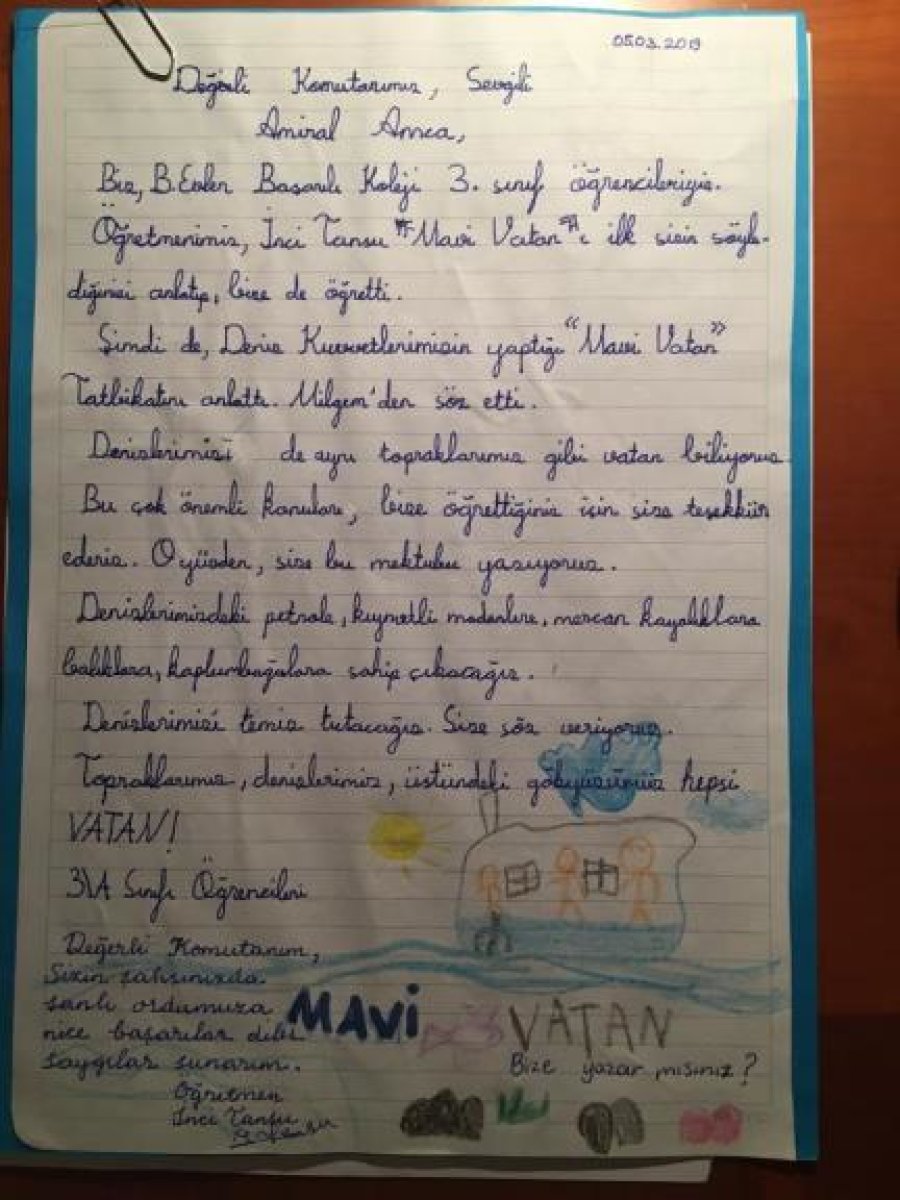 05.03.2019
Değerli Komutanımız, Sevgili
Amiral Amca,
Biz, B.Evler Başarılı Koleji 3. sınıf öğrencileriyiz.
Öğretmenimiz, İnci Tansu "Mavi Vatan"ı ilk sizin söyle-
diğinizi anlatıp, bize de öğretti.
Şimdi de, Deniz Kuvvetlerimizin yaptığı "Mavi Vatan"
Tatbikatını anlattı. Milgem'den söz etti.
Denizlerimizi de aynı topraklarımız gibi vatan biliyoruz
Bu çok önemli konuları, bize öğrettiğiniz için size teşekkür
ederiz. O yüzden, size bu mektubu yazıyoruz.
Denizlerimizdeki petrole, kıymetli madenlere, mercan kayalıklara
balıklara, kaplumbağalara sahip çıkacağız.
Denizlerimizi temiz tutacağız. Size söz veriyoruz.
Topraklarımız, denizlerimiz, üstündeki gökyüzümüz hepsi
VATAN!
3\A Sınıfı Öğrencileri
Değerli Komutanım,
Sizin şahsınızda
şanlı ordumuza
nice başarılar diler
saygılar sunarım.
Öğretmen
İnci Tansu
MAVİ VATAN
Bize yazar mısınız?